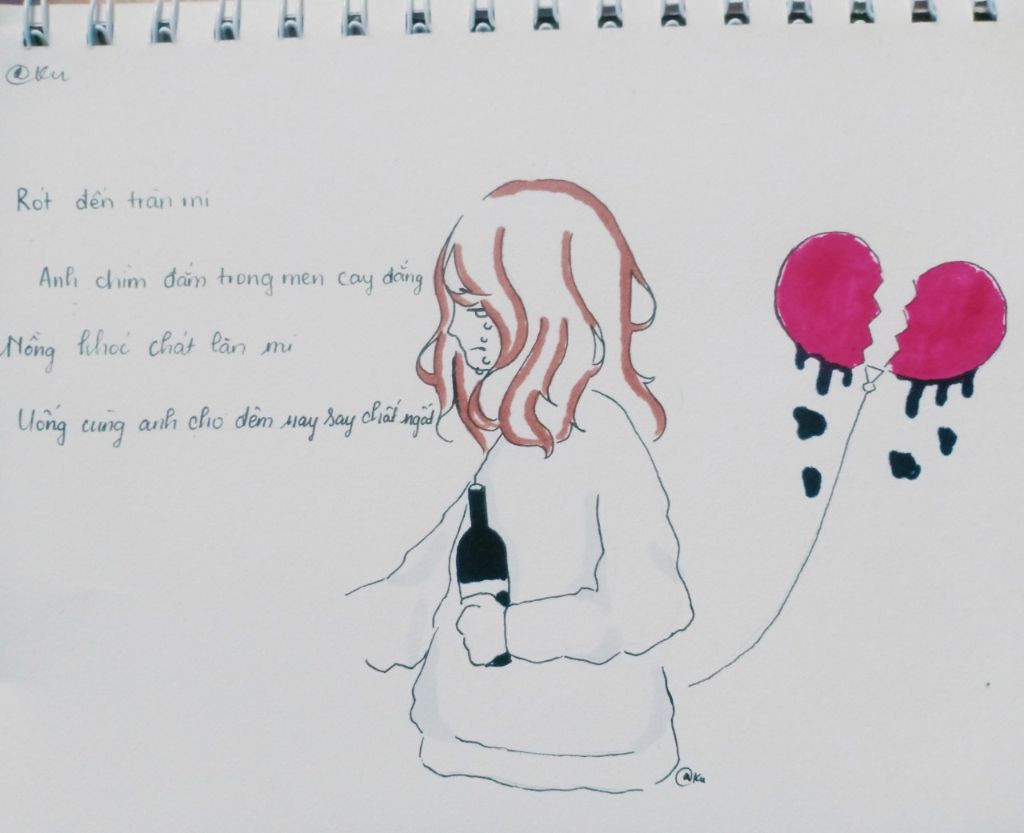 @Ku
Rót đến tràn mi
Anh chìm đắm trong men cay đắng
Nồng khóc chát làn mi
Uống cùng anh cho đêm nay say chất ngất
@Ku